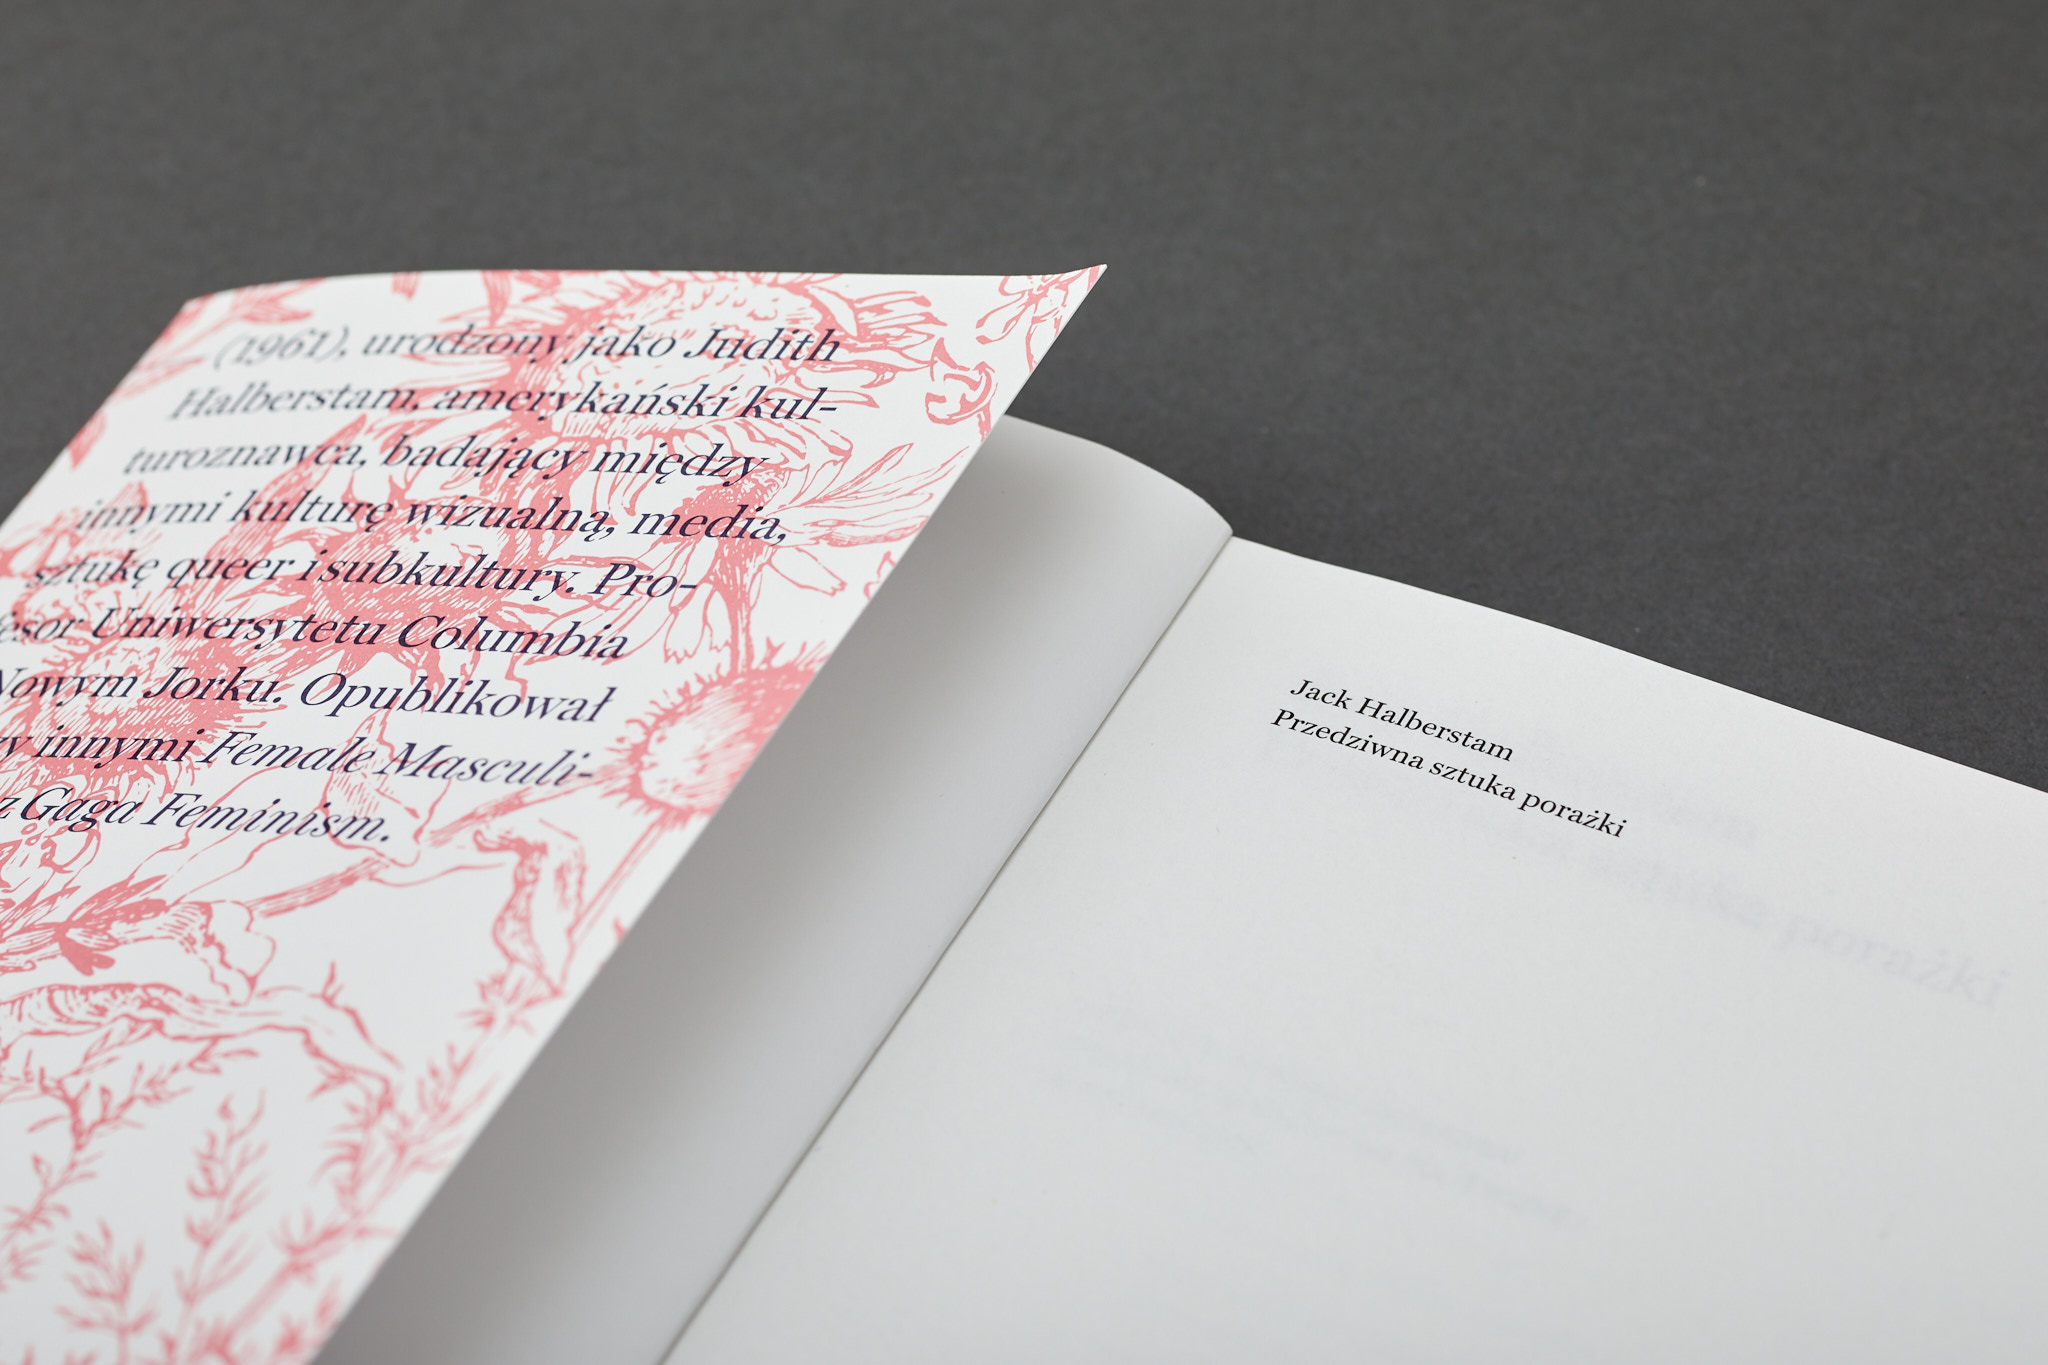 (1961), urodzony jako Judith
Halberstam, amerykański kul-
turoznawca, badający między
innymi kulturę wizualną, media,
sztukę queer i subkultury. Pro-
fesor Uniwersytetu Columbia
Nowym Jorku. Opublikował
zy innymi Female Masculi-
z Gaga Feminism.
Jack Halberstam
Przedziwna sztuka porażki
porażki